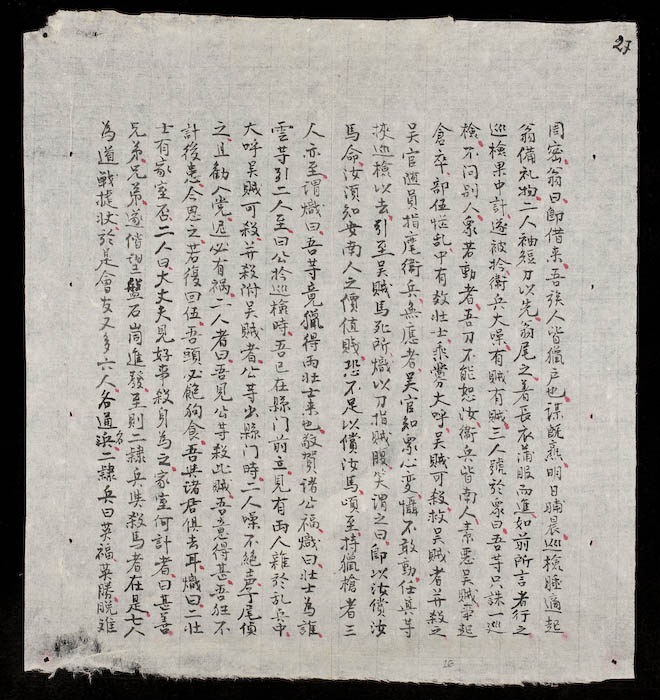 27
周密翁曰即借来吾族人皆獵户也謀既熟明日晡晨巡檢睡適起
翁備礼物二人袖短刀以先翁尾之着長衣浦服而進如前所言者行之
巡檢果中計遂被拎衛兵大噪有賊有賊三人號於衆曰吾等只誅一巡
檢不问别人衆若動者吾刀不能恕汝衛兵皆南人素惡吳賊事起
倉卒部伍惶乱中有数壮士乘釁大呼吳賊可殺救吳賊者并殺之
吳官巡員指麾衛兵無應者吳官知衆心变懾不敢動任其等
挾巡檢以去引至吳賊馬死所熾以刀指賊腹笑謂之曰即以汝償汝
馬命汝須知安南人之價值賊恐不足以償汝馬頃至持獵槍者三
人亦至謂熾曰吾等竟獵得两壮士来也敬賀诸公福熾曰壮士為誰
雲等引二人至曰公拎巡檢時吾已在縣门前立見有两人雜於乱兵中
大呼吳賊可殺并殺附吳賊者公等出縣门時二人噪不绝声丁尾偵
之且勸入党迟必有禍二人者曰吾見公等殺此賊吾意得甚吾狂不
計後患今思之若復回伍吾頭必飽狗食吾與诸君俱去耳熾曰二壮
士有家室否二人曰大丈夫見好事殺身為之家室何計者曰甚善
兄弟兄弟遂偕望盤石崗進發至則二隸兵與殺馬者在是七人
為道戰捷狀於是會友又多六人各道名派二隸兵曰英福英勝脱难
26